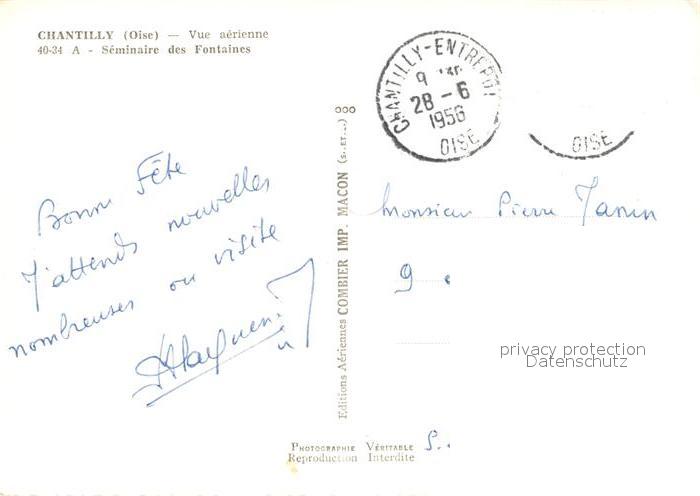 CHANTILLY (Oise) — Vue aérienne
40-34 A - Séminaire des Fontaines
CHANTILLY-ENTREPOT
9
28 - 6
1956
OISE
OISE
Bonne Fête
J'attends nouvelles
nombreuses ou visite
Monsieur Pierre Janin
9
Editions Aériennes COMBIER IMP. MACON (S.-ET-L.)
privacy protection
Datenschutz
PHOTOGRAPHIE VÉRITABLE
Reproduction Interdite